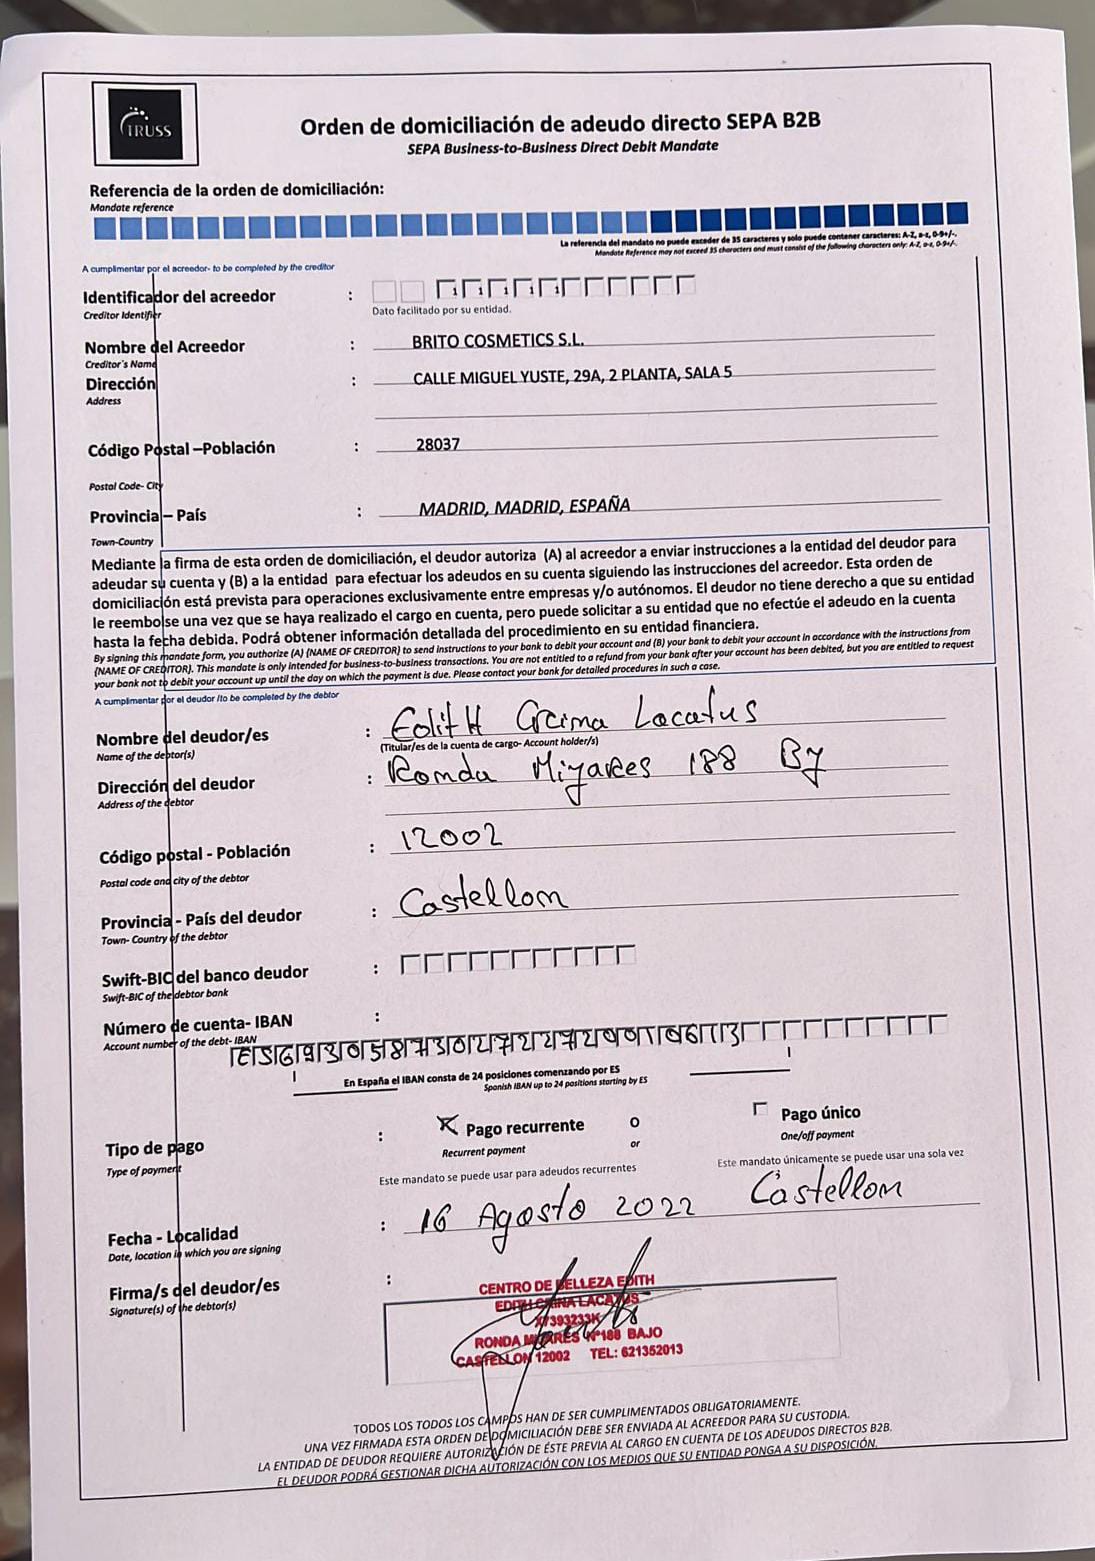 TRUSS
Orden de domiciliación de adeudo directo SEPA B2B
SEPA Business-to-Business Direct Debit Mandate
Referencia de la orden de domiciliación:
Mandate reference
La referencia del mandato no puede exceder de 35 caracteres y solo puede contener caracteres: A-Z, a-z, 0-9+/-.
Mandate Reference may not exceed 35 characters and must consist of the following characters only: A-Z, a-z, 0-9+/-.
A cumplimentar por el acreedor- to be completed by the creditor
Identificador del acreedor : 1 1 1 1 1
Creditor Identifier Dato facilitado por su entidad.
Nombre del Acreedor : BRITO COSMETICS S.L.
Creditor's Name
Dirección : CALLE MIGUEL YUSTE, 29A, 2 PLANTA, SALA 5
Address
Código Postal –Población : 28037
Postal Code- City
Provincia – País : MADRID, MADRID, ESPAÑA
Town-Country
Mediante la firma de esta orden de domiciliación, el deudor autoriza (A) al acreedor a enviar instrucciones a la entidad del deudor para
adeudar su cuenta y (B) a la entidad para efectuar los adeudos en su cuenta siguiendo las instrucciones del acreedor. Esta orden de
domiciliación está prevista para operaciones exclusivamente entre empresas y/o autónomos. El deudor no tiene derecho a que su entidad
le reembolse una vez que se haya realizado el cargo en cuenta, pero puede solicitar a su entidad que no efectúe el adeudo en la cuenta
hasta la fecha debida. Podrá obtener información detallada del procedimiento en su entidad financiera.
By signing this mandate form, you authorize (A) {NAME OF CREDITOR} to send instructions to your bank to debit your account and (B) your bank to debit your account in accordance with the instructions from
{NAME OF CREDITOR}. This mandate is only intended for business-to-business transactions. You are not entitled to a refund from your bank after your account has been debited, but you are entitled to request
your bank not to debit your account up until the day on which the payment is due. Please contact your bank for detailed procedures in such a case.
A cumplimentar por el deudor /to be completed by the debtor
Nombre del deudor/es : Edith Crina Lacatus
Name of the debtor(s) (Titular/es de la cuenta de cargo- Account holder/s)
Dirección del deudor : Ronda Mijares 188 Bj
Address of the debtor
Código postal - Población : 12002
Postal code and city of the debtor
Provincia - País del deudor : Castellon
Town- Country of the debtor
Swift-BIC del banco deudor :
Swift-BIC of the debtor bank
Número de cuenta- IBAN :
Account number of the debt- IBAN
En España el IBAN consta de 24 posiciones comenzando por ES
Spanish IBAN up to 24 positions starting by ES
Tipo de pago : X Pago recurrente o Pago único
Type of payment Recurrent payment or One/off payment
Este mandato se puede usar para adeudos recurrentes Este mandato únicamente se puede usar una sola vez
Fecha - Localidad : 16 Agosto 2022 Castellon
Date, location in which you are signing
Firma/s del deudor/es :
Signature(s) of the debtor(s)
CENTRO DE BELLEZA EDITH
EDITH CRINA LACATUS
X7393233K
RONDA MIJARES Nº188 BAJO
CASTELLON 12002 TEL: 621352013
TODOS LOS TODOS LOS CAMPOS HAN DE SER CUMPLIMENTADOS OBLIGATORIAMENTE.
UNA VEZ FIRMADA ESTA ORDEN DE DOMICILIACIÓN DEBE SER ENVIADA AL ACREEDOR PARA SU CUSTODIA.
LA ENTIDAD DE DEUDOR REQUIERE AUTORIZACIÓN DE ÉSTE PREVIA AL CARGO EN CUENTA DE LOS ADEUDOS DIRECTOS B2B.
EL DEUDOR PODRÁ GESTIONAR DICHA AUTORIZACIÓN CON LOS MEDIOS QUE SU ENTIDAD PONGA A SU DISPOSICIÓN.